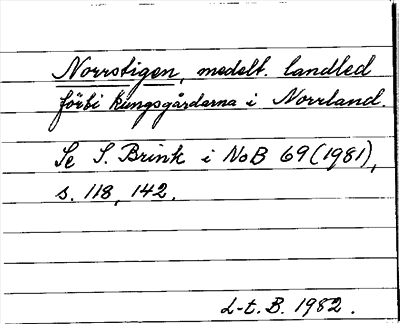 Norrstigen, medelt. landled
förbi kungsgårdarna i Norrland.
Se S. Brink i NoB 69 (1981),
s. 118, 142.
L-t. B. 1982.